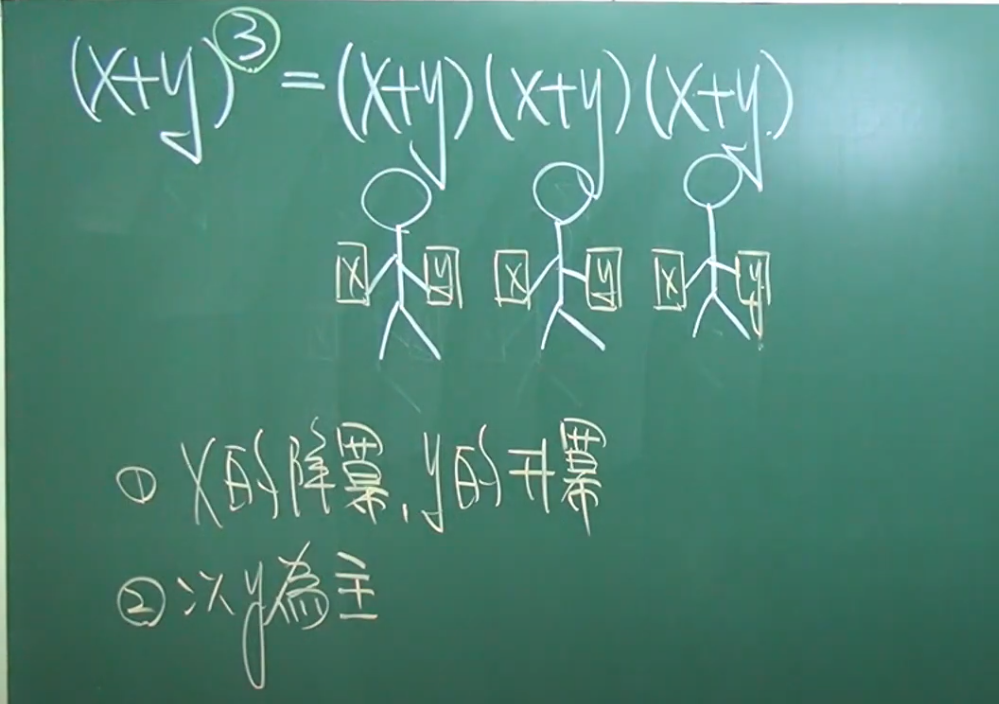 (x+y)³=(x+y)(x+y)(x+y)
x y x y x y
① x的降冪,y的升冪
② 以y為主